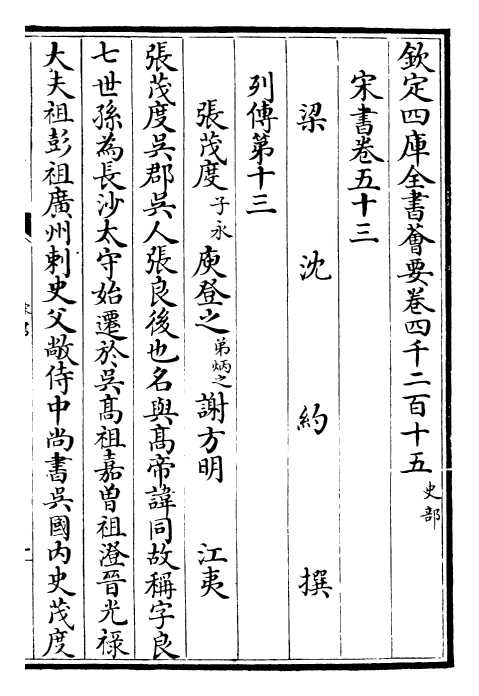 欽定四庫全書薈要卷四千二百十五 史部
宋書卷五十三
梁 沈 約 撰
列傳第十三
張茂度 子永 庾登之 弟炳之 謝方明 江夷
張茂度吳郡吳人張良後也名與髙帝諱同故稱字良
七世孫為長沙太守始遷於吳髙祖嘉曾祖澄晉光祿
大夫祖彭祖廣州刺史父敞侍中尚書吳國内史茂度